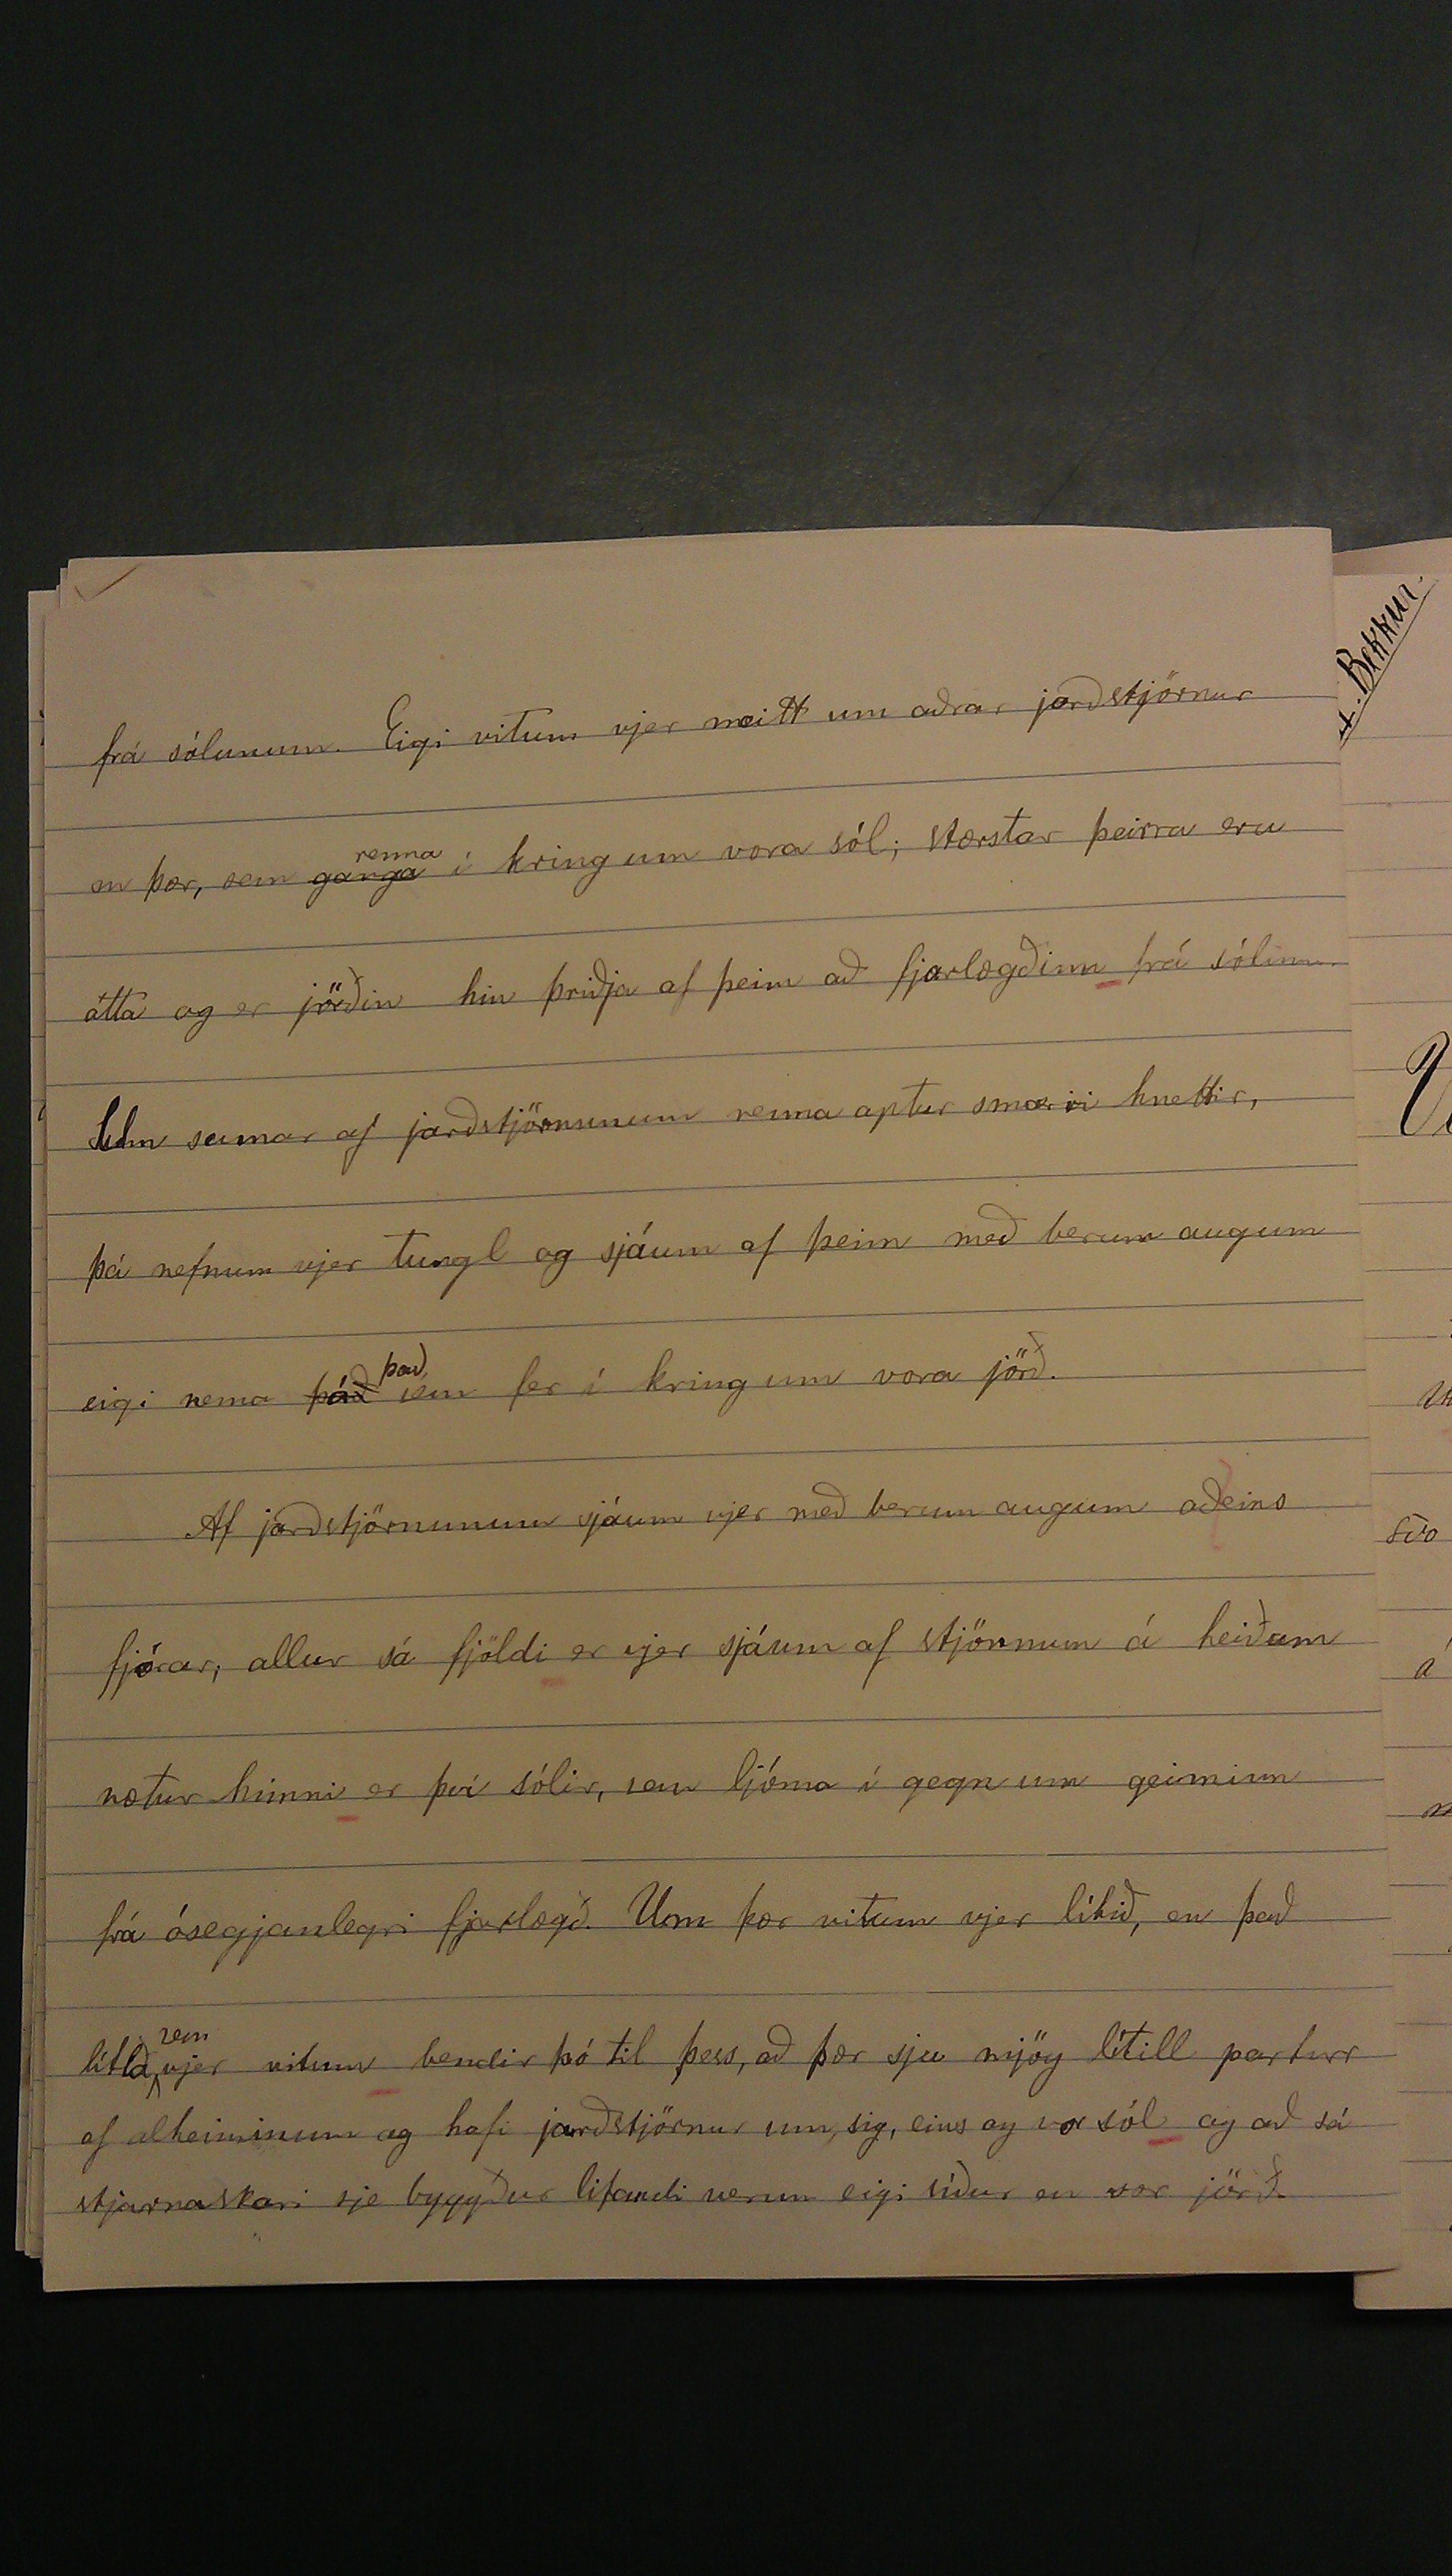 frá sólunum. Eigi vitum vjer neitt um aðrar jarðstjörnur
en þær, sem ganga renna í kring um vora sól; stærstar þeirra eru
átta og er jörðin hin þriðja af þeim að fjarlægðinn frá sólinni.
Um sumar af jarðstjörnunum renna aptur smærri hnettir,
þá nefnum vjer tungl og sjáum af þeim með berum augum
eigi nema það það sem fer í kring um vora jörð.
Af jarðstjörnunum sjáum vjer með berum augum aðeins
fjórar; allur sá fjöldi er vjer sjáum af stjörnum á heiðum
nætur himni er því sólir, sem ljóma í gegn um geiminn
frá ósegjanlegri fjarlægð. Um þær vitum vjer lítið, en það
litla sem vjer vitum bendir þó til þess, að þær sju mjög lítill partur
af alheiminum og hafi jarðstjörnur um sig, eins og vor sól og að sá
stjarnaskari sje byggður lifandi verum eigi síður en vor jörð.
Bekkur.
svo
á